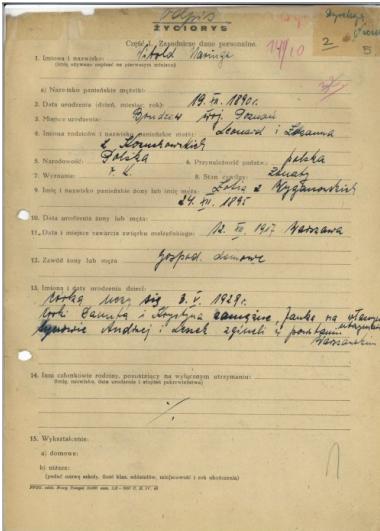 Odpis
ŻYCIORYS
Część I. Zasadnicze dane personalne.
14/10
2
5
1. Imiona i nazwisko: Witold
(Imię używane napisać na pierwszym miejscu)
a) Nazwisko panieńskie mężatki:
2. Data urodzenia (dzień, miesiąc, rok): 19. XII. 1890 r.
3. Miejsce urodzenia: woj. Poznań
4. Imiona rodziców i nazwisko panieńskie matki: Leonard i Zuzanna
z
5. Narodowość: Polska 6. Przynależność państw.: polska
7. Wyznanie: r. k. 8. Stan cywilny: żonaty
9. Imię i nazwisko panieńskie żony lub imię męża: Zofia z Wyganowskich
24. XII. 1895
10. Data urodzenia żony lub męża:
11. Data i miejsce zawarcia związku małżeńskiego: 12. XII 1917 Warszawa
12. Zawód żony lub męża Gospod. domowe
13. Imiona i daty urodzenia dzieci:
się 3. V. 1929 r.
córki Danuta i Krystyna zamężne, Janka na własnym utrzymaniu
synowie Andrzej i Leszek zginęli w powstaniu
Warszawskim
14. Inni członkowie rodziny, pozostający na wyłącznym utrzymaniu:
(Imię, nazwisko, data urodzenia i stopień pokrewieństwa)
%
15. Wykształcenie:
a) domowe:
b) niższe:
(podać nazwę szkoły, ilość klas, oddziałów, miejscowość i rok ukończenia)